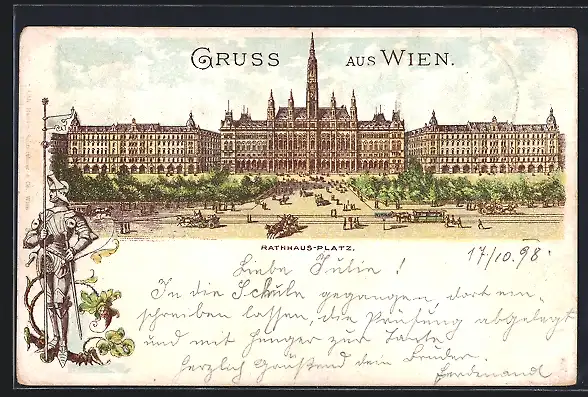 GRUSS AUS WIEN.
RATHHAUS-PLATZ.
17/10.98.
Liebe Julie!
In die Schule gegangen, dort ein-
schreiben lassen, die Prüfung abgelegt
und mit Hunger zur Tante.
Herzlich grüßend dein Bruder.
Ferdinand